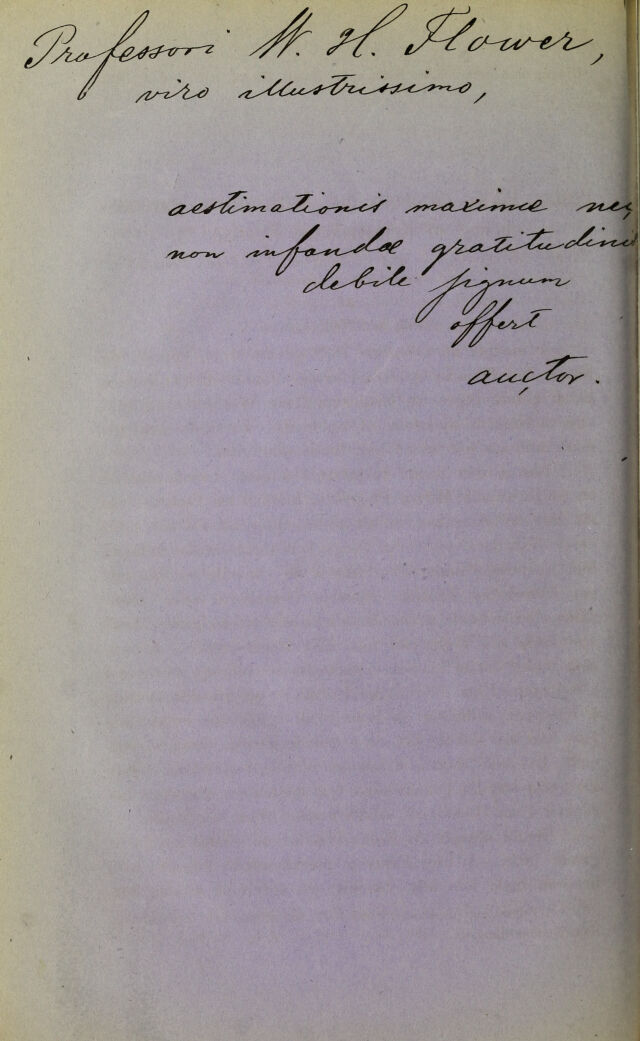 Professori W. H. Flower,
viro illustrissimo,
aestimationis maximæ nec
non infandæ gratitudinis
debile signum
offert
auctor.